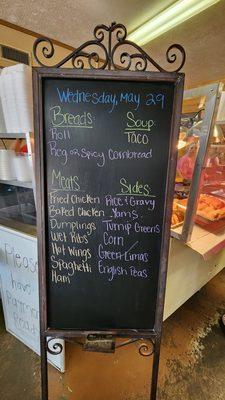 Wednesday, May 29
Breads
Roll
Reg or Spicy Cornbread
Soup:
Taco
Meats
Fried Chicken
Baked Chicken
Dumplings
Wet Ribs
Hot Wings
Spaghetti
Ham
Sides:
Rice & Gravy
Yams
Turnip Greens
Corn
Green Limas
English Peas
Please
have
Payment
ready